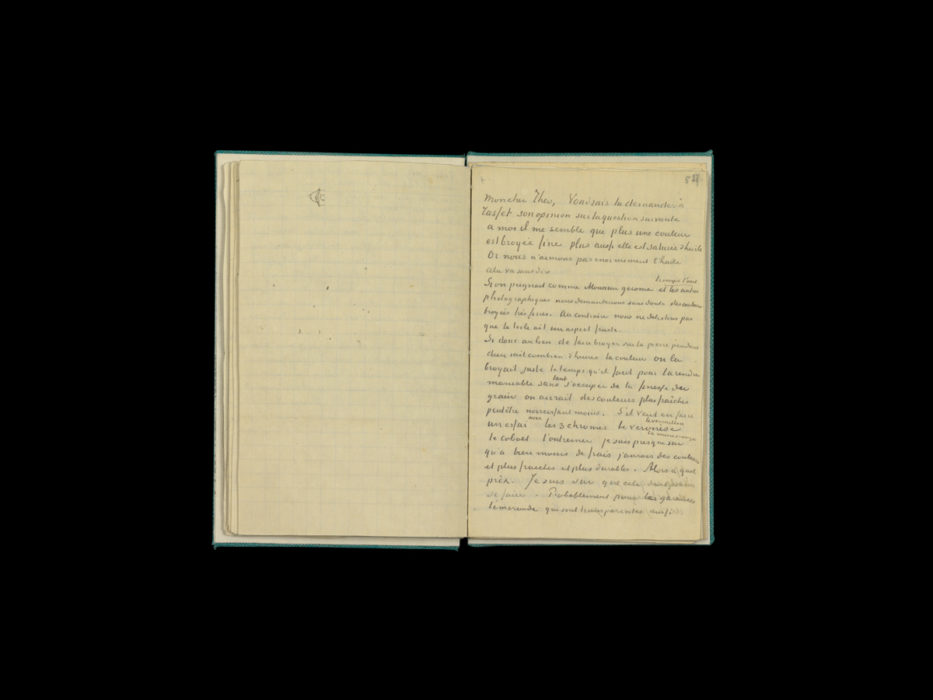 58
Mon cher Theo, Voudrais tu demander à
Tasset son opinion sur la question suivante
a moi il me semble que plus une couleur
est broyée fine plus aussi elle est saturée d'huile
Or nous n'aimons pas enormement l'huile
cela va sans dire
Si on peignait comme Monsieur gerome et les autres
trompe l'oeil
photographiques nous demanderions sans doute des couleurs
broyées très fines. Au contraire nous ne detestons pas
que la toile ait un aspect fruste.
Si donc au lieu de faire broyer sur la pierre pendant
dieu sait combien d'heures la couleur on la
broyait juste le temps qu'il faut pour la rendre
maniable sans tant s'occuper de la finesse du
grain on aurait des couleurs plus fraiches
peutêtre noircissant moins. S'il veut en faire
un essai avec les 3 chromes le veronèse
le vermillon
la mine orange
le cobalt l'outremer je suis presque sur
qu'a bien moins de frais j'aurais des couleurs
et plus fraiches et plus durables. Alors à quel
prix. Je suis sur que cela doit pouvoir
se faire. Probablement pour les garances
l'emeraude qui sont transparentes aussi